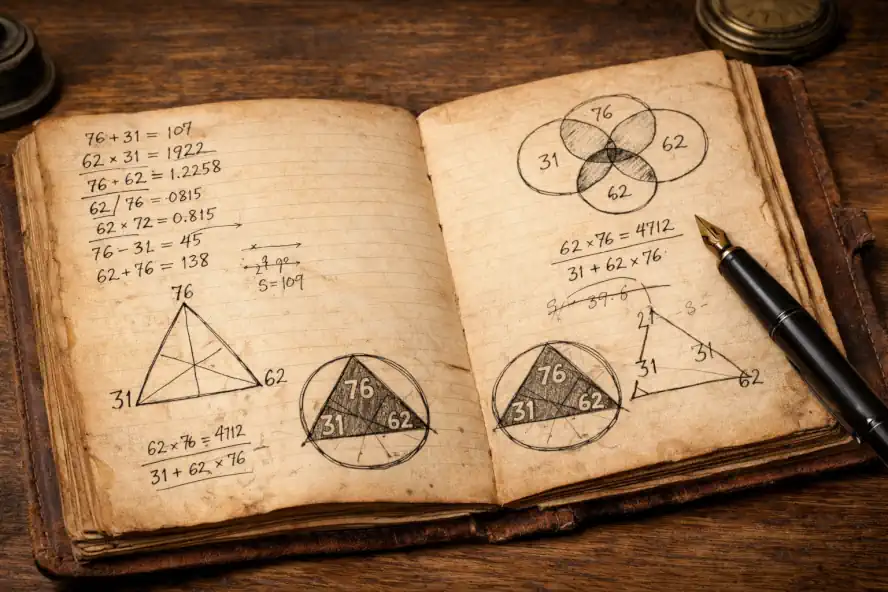 76 + 31 = 107
62 × 31 = 1922
76 + 62 = 1.2258
62 / 76 = 0815
62 × 72 = 0.815
76 - 31 = 45
62 + 76 = 138
S = 109
76
31
62
62 × 76 = 4712
31 + 62 × 76
76
31
62
76
31
62
62
62 × 76 = 4712
31 + 62 × 76
76
31
62
31
31
62